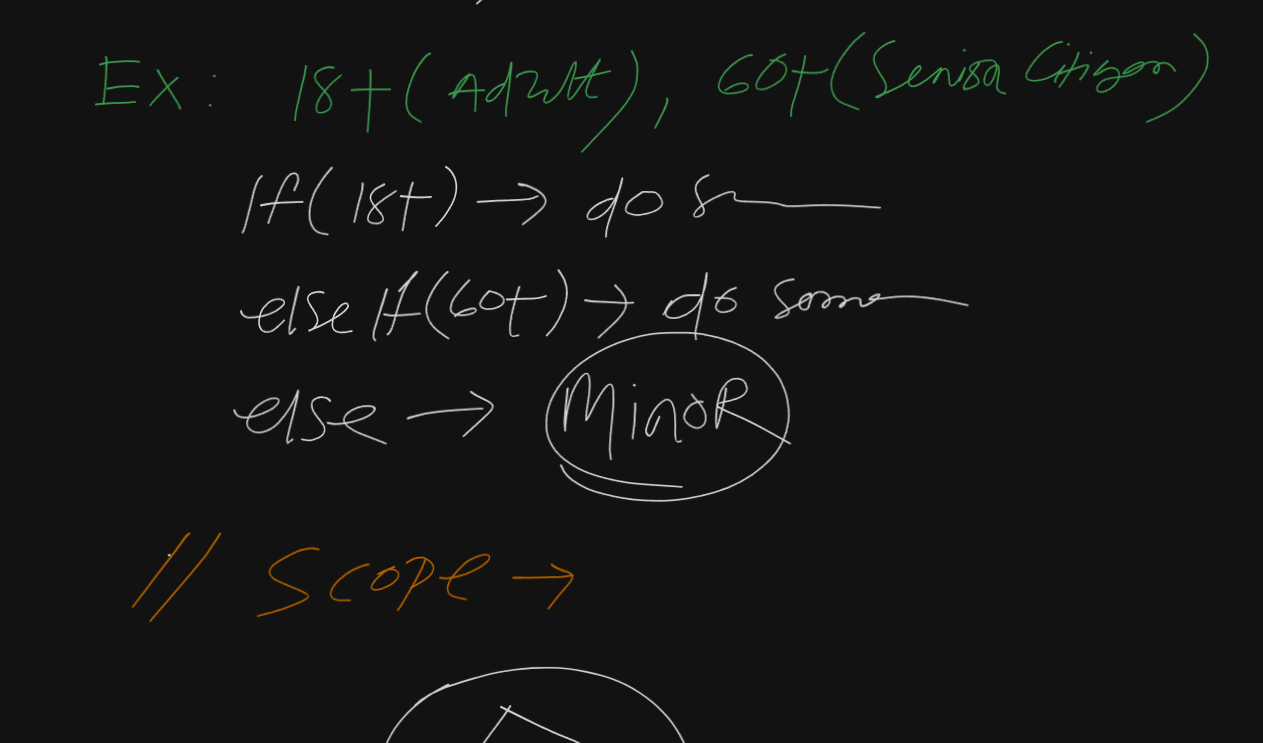 Ex: 18+(Adult), 60+(Senior Citizen)
If(18+) → do s
else If(60+) → do some
else → Minor
// Scope →